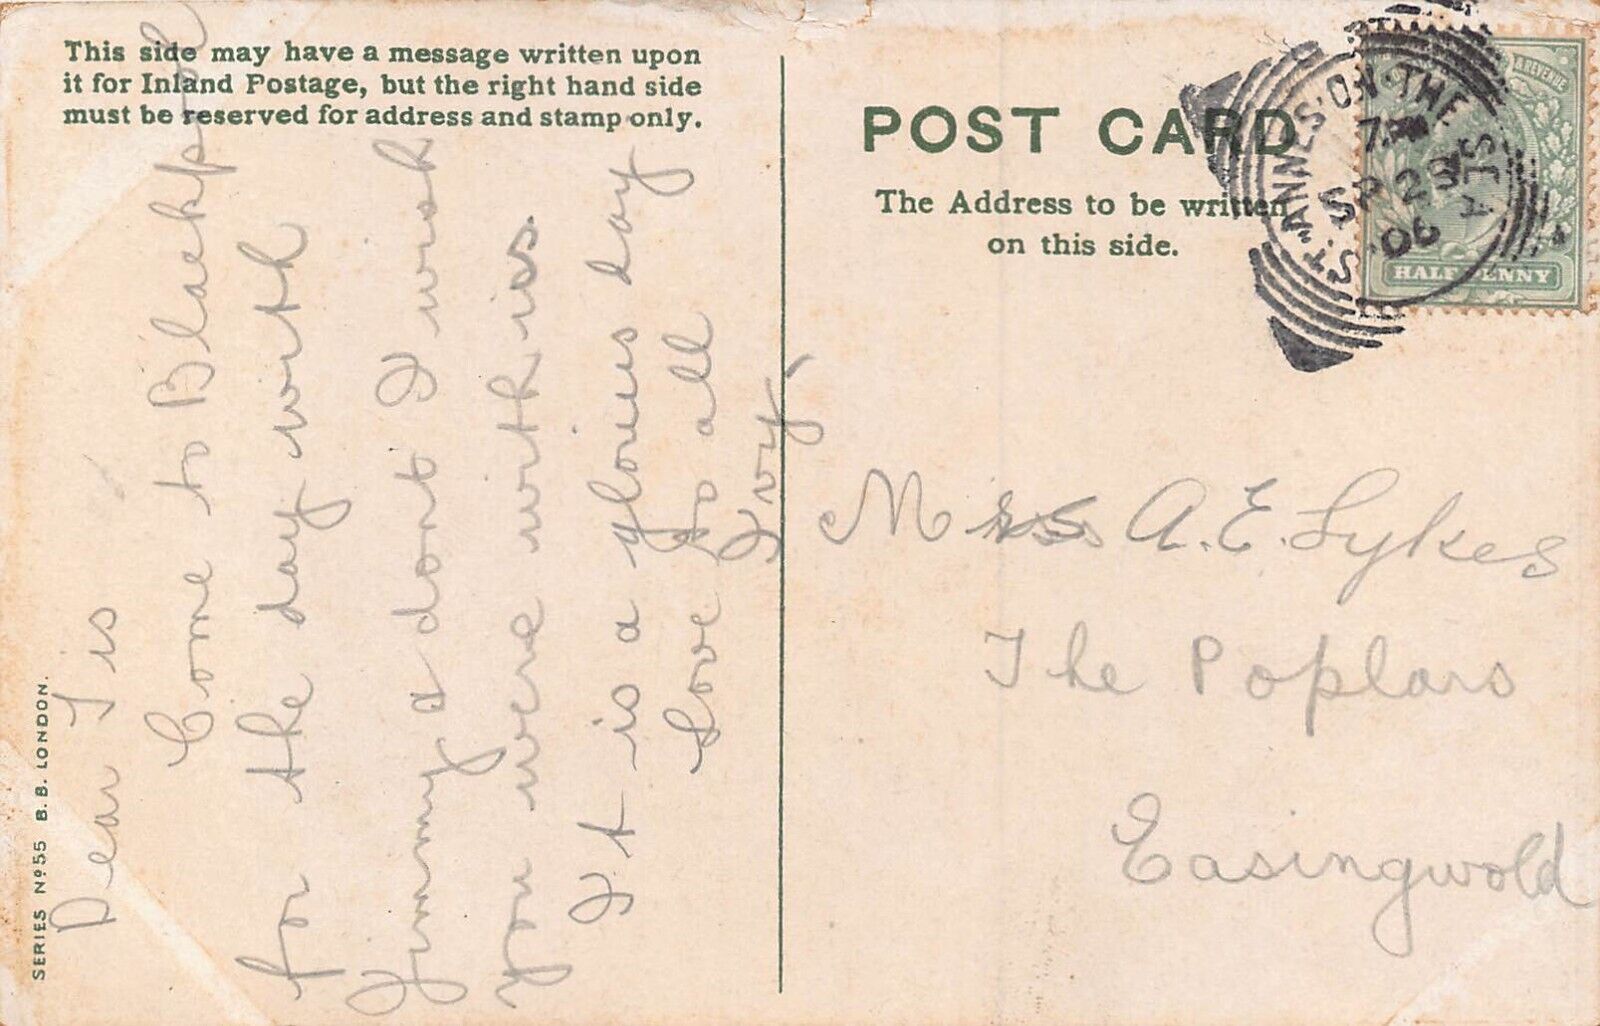 This side may have a message written upon
it for Inland Postage, but the right hand side
must be reserved for address and stamp only.
POST CARD
The Address to be written
on this side.
ST. ANNES·ON·THE SEA
SP 29
06
& REVENUE
HALFPENNY
Dear Tis
Come to Blackpool
for the day with
Jimmy & dont I wish
you were with us
It is a glorius day
Love to all
Ivy.
Mrs A. E. Sykes
The Poplars
Easingwold
SERIES No 55 B.B. LONDON.